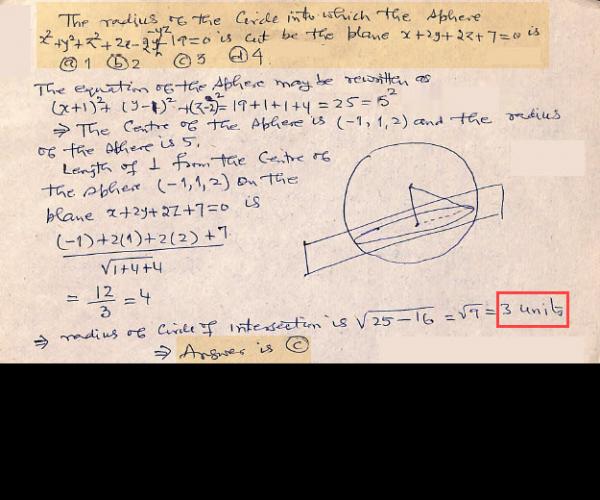 The radius of the Circle into which the sphere
x²+y²+z²+2x-2y-4z-19=0 is cut be the plane x+2y+2z+7=0 is
ⓐ 1 ⓑ 2 ⓒ 3 ⓓ 4
The equation of the sphere may be rewritten as
(x+1)²+(y-1)²+(z-2)²=19+1+1+4=25=5²
⇒ The Centre of the sphere is (-1,1,2) and the radius
of the sphere is 5.
Length of ⊥ from the Centre of
the sphere (-1,1,2) on the
plane x+2y+2z+7=0 is
(-1)+2(1)+2(2)+7
√1+4+4
= 12/3 = 4
⇒ radius of Circle of intersection is √25-16 = √9 = 3 units
⇒ Answer is ⓒ